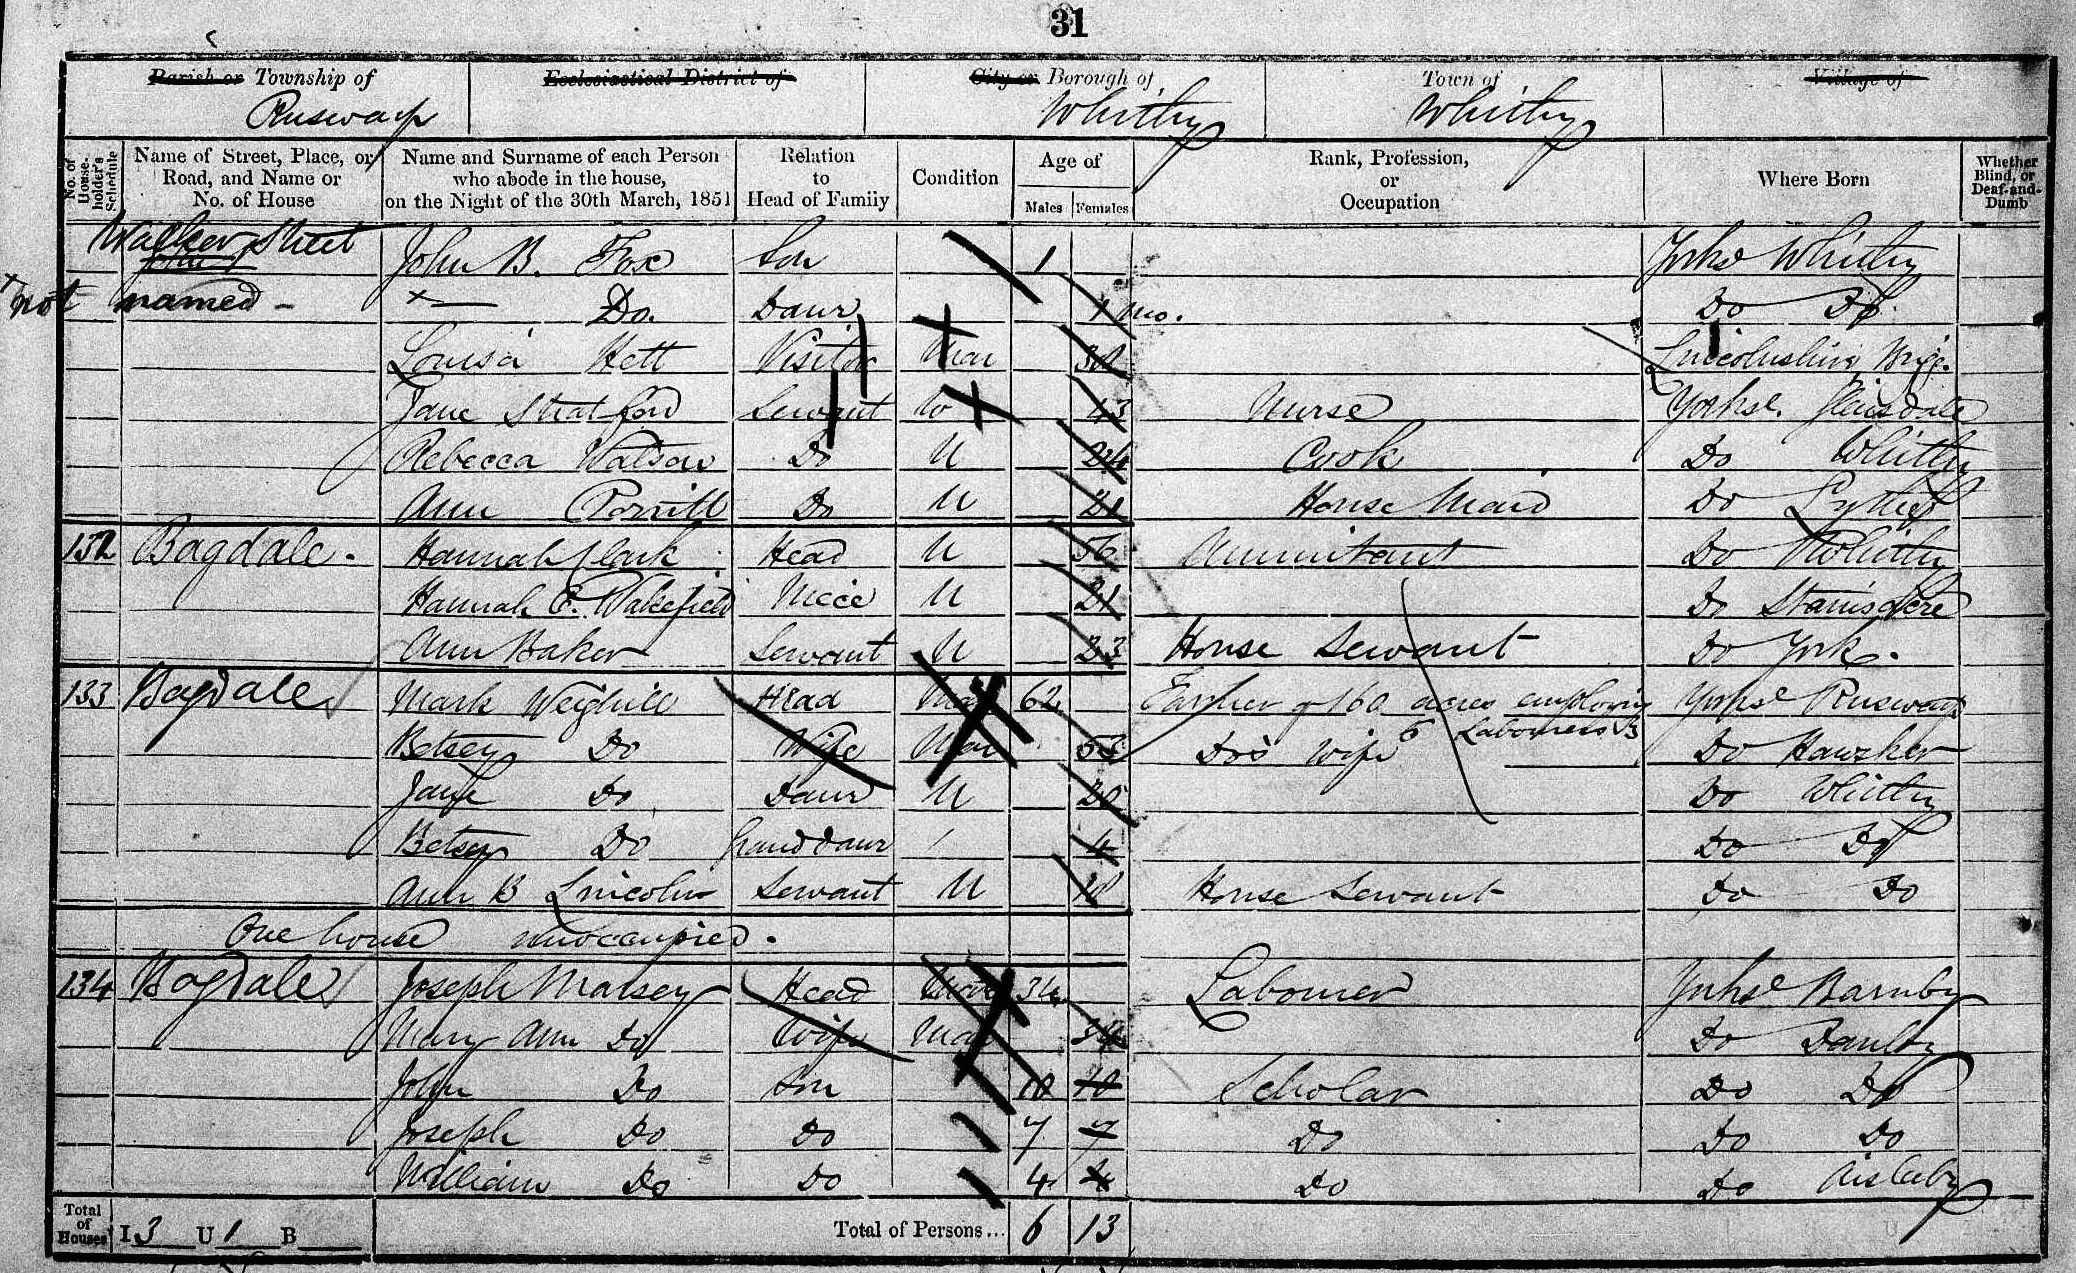 31
Parish or Township of Ecclesiastical District of City or Borough of Town of Village of
Ruswarp Whitby Whitby
No. of House-holder's Schedule Name of Street, Place, or Road, and Name or No. of House Name and Surname of each Person who abode in the house, on the Night of the 30th March, 1851 Relation to Head of Family Condition Age of Males Females Rank, Profession, or Occupation Where Born Whether Blind, or Deaf-and-Dumb
Walker Street John B. Fox Son 1 Yorks Whitby
x not named - x Do. Daur 1 mo. Do Do
Louisa Hett Visitor Mar Lincolnshire Brigg.
Jane Stratford Servant W 43 Nurse Yorkse. Glaisdale
Rebecca Watson Do U 24 Cook Do Whitby
Ann Porritt Do U 21 House Maid Do Lythe
132 Bagdale. Hannah Clark Head U 56 Annuitant Do Whitby
Hannah E. Wakefield Niece U 21 Do Stainsacre
Ann Baker Servant U 23 House Servant Do York.
133 Bagdale Mark Weighill Head Mar 62 Farmer of 60 acres employing Yorkse Ruswarp
Betsey Do Wife Mar Do's Wife Labourers 3 Do Hawsker
Jane Do Daur U 20 Do Whitby
Betsey Do Grand Daur 4 Do Do
Ann B Lincoln Servant U 18 House Servant Do Do
One house unoccupied.
134 Bagdale Joseph Matsey Head Mar 34 Labourer Yorkse Barnby
Mary Ann Do Wife Mar 34 Do Danby
John Do Son 10 10 Scholar Do Do
Joseph Do Do 7 7 Do Do Do
William Do Do 4 4 Do Do Aislaby
Total of Houses I 3 U 1 B Total of Persons... 6 13